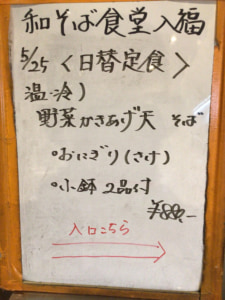 和そば食堂入福
5/25 <日替定食>
温・冷)
野菜かきあげ天 そば
•おにぎり(さけ)
•小鉢 2品付
¥880.-
入口こちら